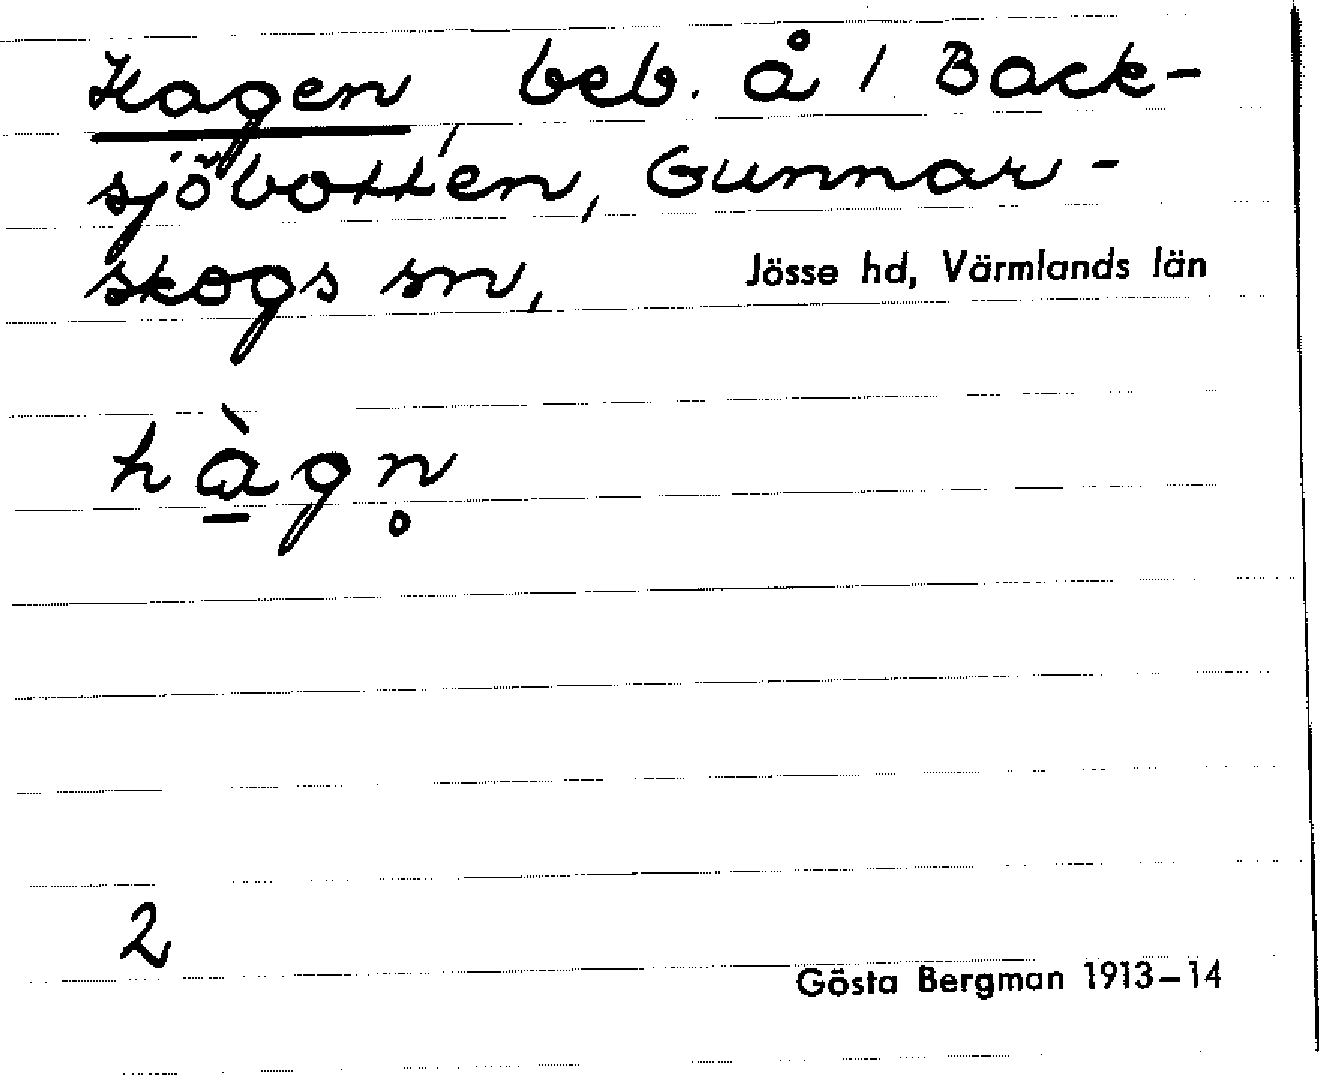 Hagen, beb. å / Back-
sjöbotten, Gunnar-
skogs sn, Jösse hd, Värmlands län
hàgn̥
2
Gösta Bergman 1913–14